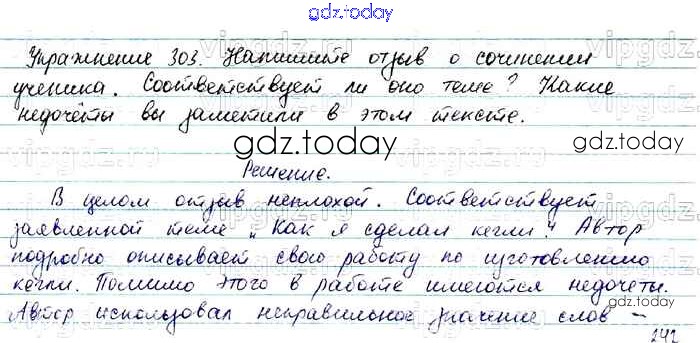 gdz.today
Упражнение 303. Напишите отзыв о сочинении
ученика. Соответствует ли оно теме? Какие
недочёты вы заметили в этом тексте.
gdz.today
gdz.today
Решение.
В целом отзыв неплохой. Соответствует
заявленной теме „Как я сделал кегли". Автор
подробно описывает свою работу по изготовлению
кегли. Помимо этого в работе имеются недочеты.
gdz.today
Автор использовал неправильное значение слов –
242